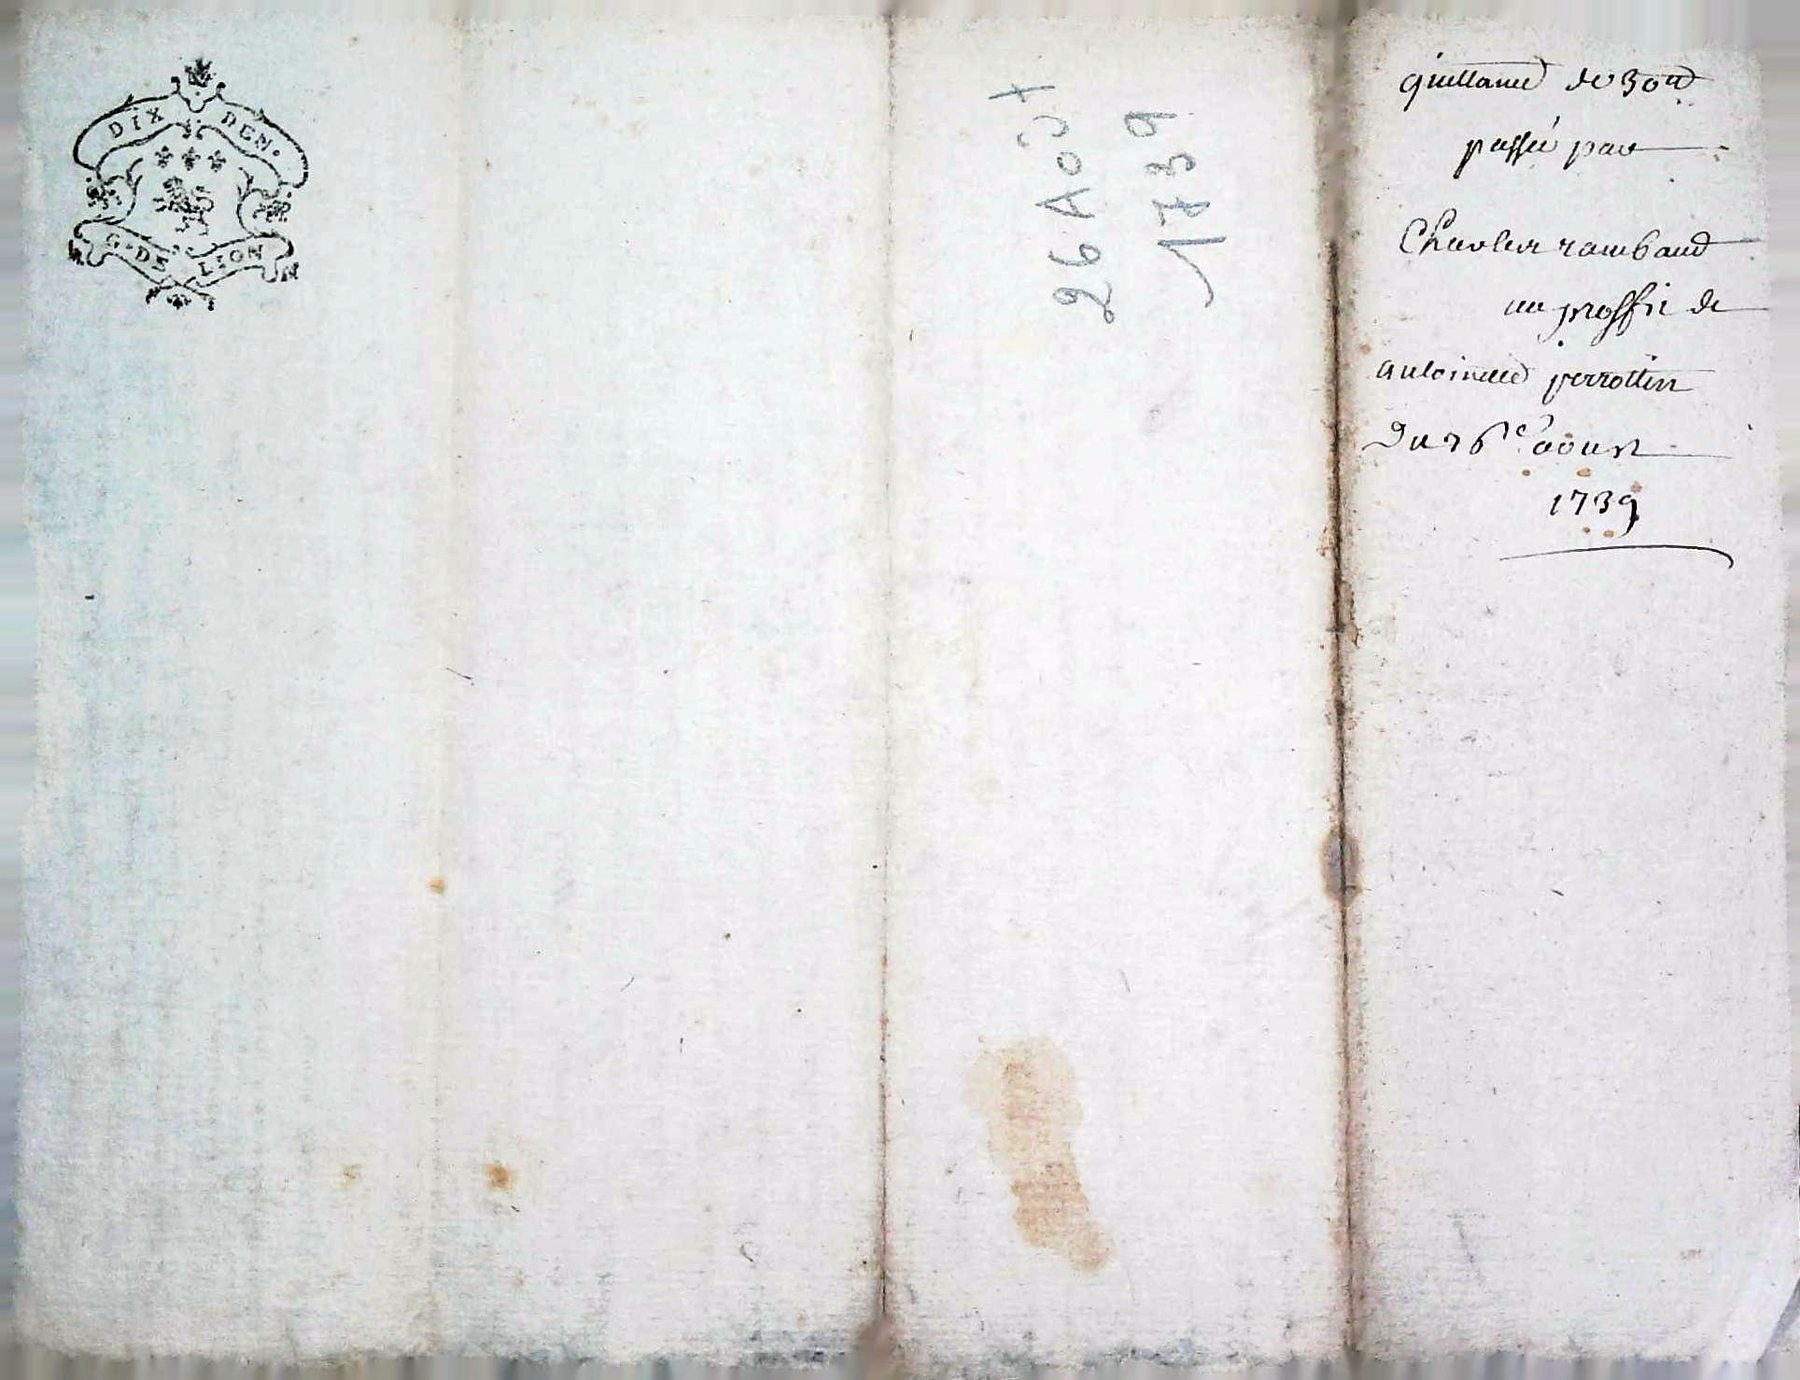 DIX DEN.
G. DE LION
26 Août
1739
quittance de 30 tt
passée par
Charles rambaud
au proffit de
antoinette perrottin
Du 26e aoust
1739